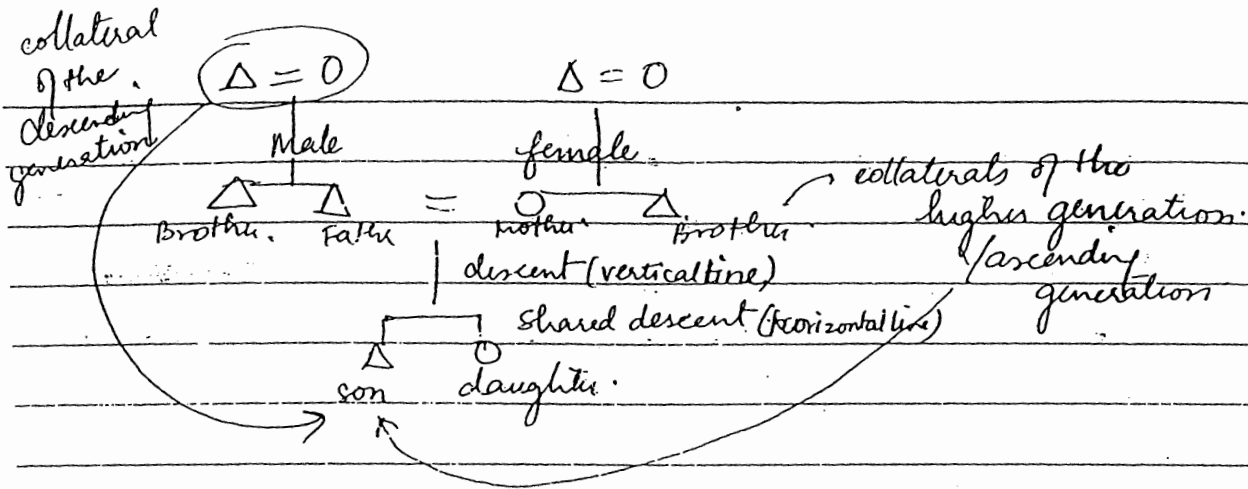 collateral
of the
descending
generation
Δ = 0
Δ = 0
Male
female
Brother. Father = Mother. Brother.
collaterals of the
higher generation.
/ascending
generation
descent (vertical line)
shared descent (horizontal line)
son daughter.